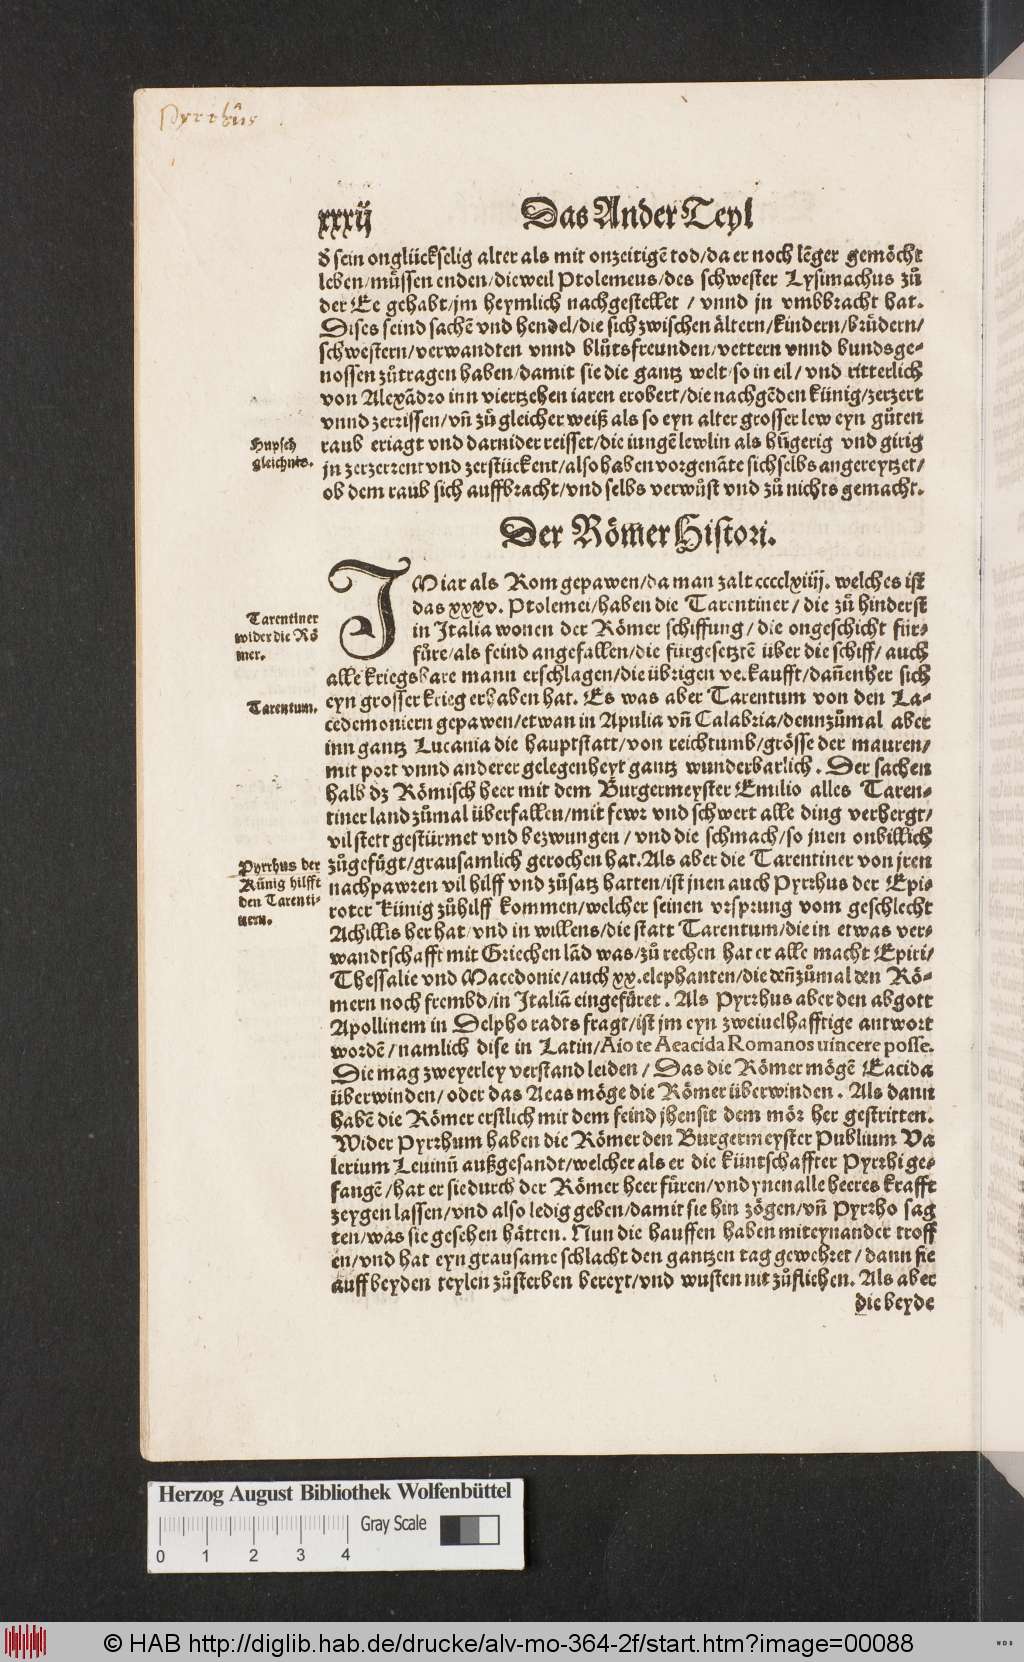 Pyrrhûs
xxxij
Das Ander Teyl
d̕ sein onglückselig alter als mit onzeitigē tod/da er noch lēger gemöcht
leben/müssen enden/dieweil Ptolemeus/des schwester Lysimachus zů
der Ee gehabt/jm heymlich nachgestellet / vnnd jn vmbbracht hat.
Dises seind sachē vnd hendel/die sich zwischen ältern/kindern/brůdern/
schwestern/verwandten vnnd blůtsfreunden/vettern vnnd bundsge-
nossen zůtragen haben/damit sie die gantz welt/so in eil/ vnd ritterlich
von Alexādro inn viertzehen iaren erobert/die nachgēden künig/zerzert
vnnd zerrissen/vn̄ zů gleicher weiß als so eyn alter grosser lew eyn gůten
raub eriagt vnd darnider reisset/die iungē lewlin als hūgerig vnd girig
jn zerzerrent vnd zerstückent/also haben vorgenāte sich selbs angereytzet/
ob dem raub sich auffbracht/vnd selbs verwůst vnd zů nichts gemacht.
Hupsch
gleichnis.
Der Römer Histori.
IM iar als Rom gepawen/da man zalt cccclxiiij. welches ist
das xxxv. Ptolemei/haben die Tarentiner/ die zů hinderst
in Italia wonen der Römer schiffung/ die ongeschicht für-
fůre/als feind angefallen/die fürgesetztē über die schiff/ auch
alle kriegsbare mann erschlagen/die übrigen verkaufft/dan̄enher sich
eyn grosser krieg erhaben hat. Es was aber Tarentum von den La-
cedemoniern gepawen/etwan in Apulia vn̄ Calabria/dennzůmal aber
inn gantz Lucania die hauptstatt/von reichtumb/grösse der mauren/
mit port vnnd anderer gelegenheyt gantz wunderbarlich. Der sachen
halb dz Römisch heer mit dem Burgermeyster Emilio alles Taren-
tiner land zůmal überfallen/mit fewr vnd schwert alle ding verhergt/
vil stett gestürmet vnd bezwungen / vnd die schmach/so jnen onbillich
zůgefügt/grausamlich gerochen hat. Als aber die Tarentiner von jren
nachpawren vil hilff vnd zůsatz hatten/ist jnen auch Pyrrhus der Epi-
roter Künig zůhilff kommen/welcher seinen vrsprung vom geschlecht
Achillis her hat/vnd in willens/die statt Tarentum/die in etwas ver-
wandtschafft mit Griechen lād was/zů rechen hat er alle macht Epiri/
Thessalie vnd Macedonie/auch xx. elephanten/die den̄zůmal den Rö-
mern noch frembd/in Italiā eingefüret. Als Pyrrhus aber den abgott
Apollinem in Delpho radts fragt/ist jm eyn zweiuelhafftige antwort
wordē/ namlich dise in Latin/Aio te Aeacida Romanos uincere posse.
Die mag zweyerley verstand leiden / Das die Römer mögē Eacida
überwinden/ oder das Aeas möge die Römer überwinden. Als dann
habē die Römer erstlich mit dem feind jhensit dem mör her gestritten.
Wider Pyrrhum haben die Römer den Burgermeyster Publium Va
lerium Leuinū außgesandt/welcher als er die küntschaffter Pyrrhi ge-
fangē/hat er sie durch der Römer heer füren/vnd ynen alle heeres krafft
zeygen lassen/vnd also ledig geben/damit sie hin zögen/vn̄ Pyrrho sag
ten/was sie gesehen hätten. Nun die hauffen haben miteynander troff
en/vnd hat eyn grausame schlacht den gantzen tag gewehret/ dann sie
auff beyden teylen zůsterben bereyt/vnd wusten nit zůfliehen. Als aber
die beyde
Tarentiner
wider die Rö
mer.
Tarentum.
Pyrrhus der
Künig hilfft
den Tarenti-
nern.
Herzog August Bibliothek Wolfenbüttel
Gray Scale
0 1 2 3 4
© HAB http://diglib.hab.de/drucke/alv-mo-364-2f/start.htm?image=00088